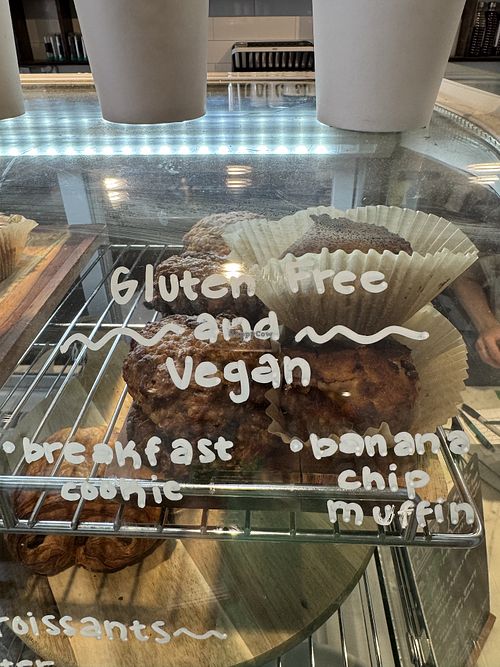 Gluten Free
and
Vegan
• breakfast
cookie
• banana
chip
muffin
roissants